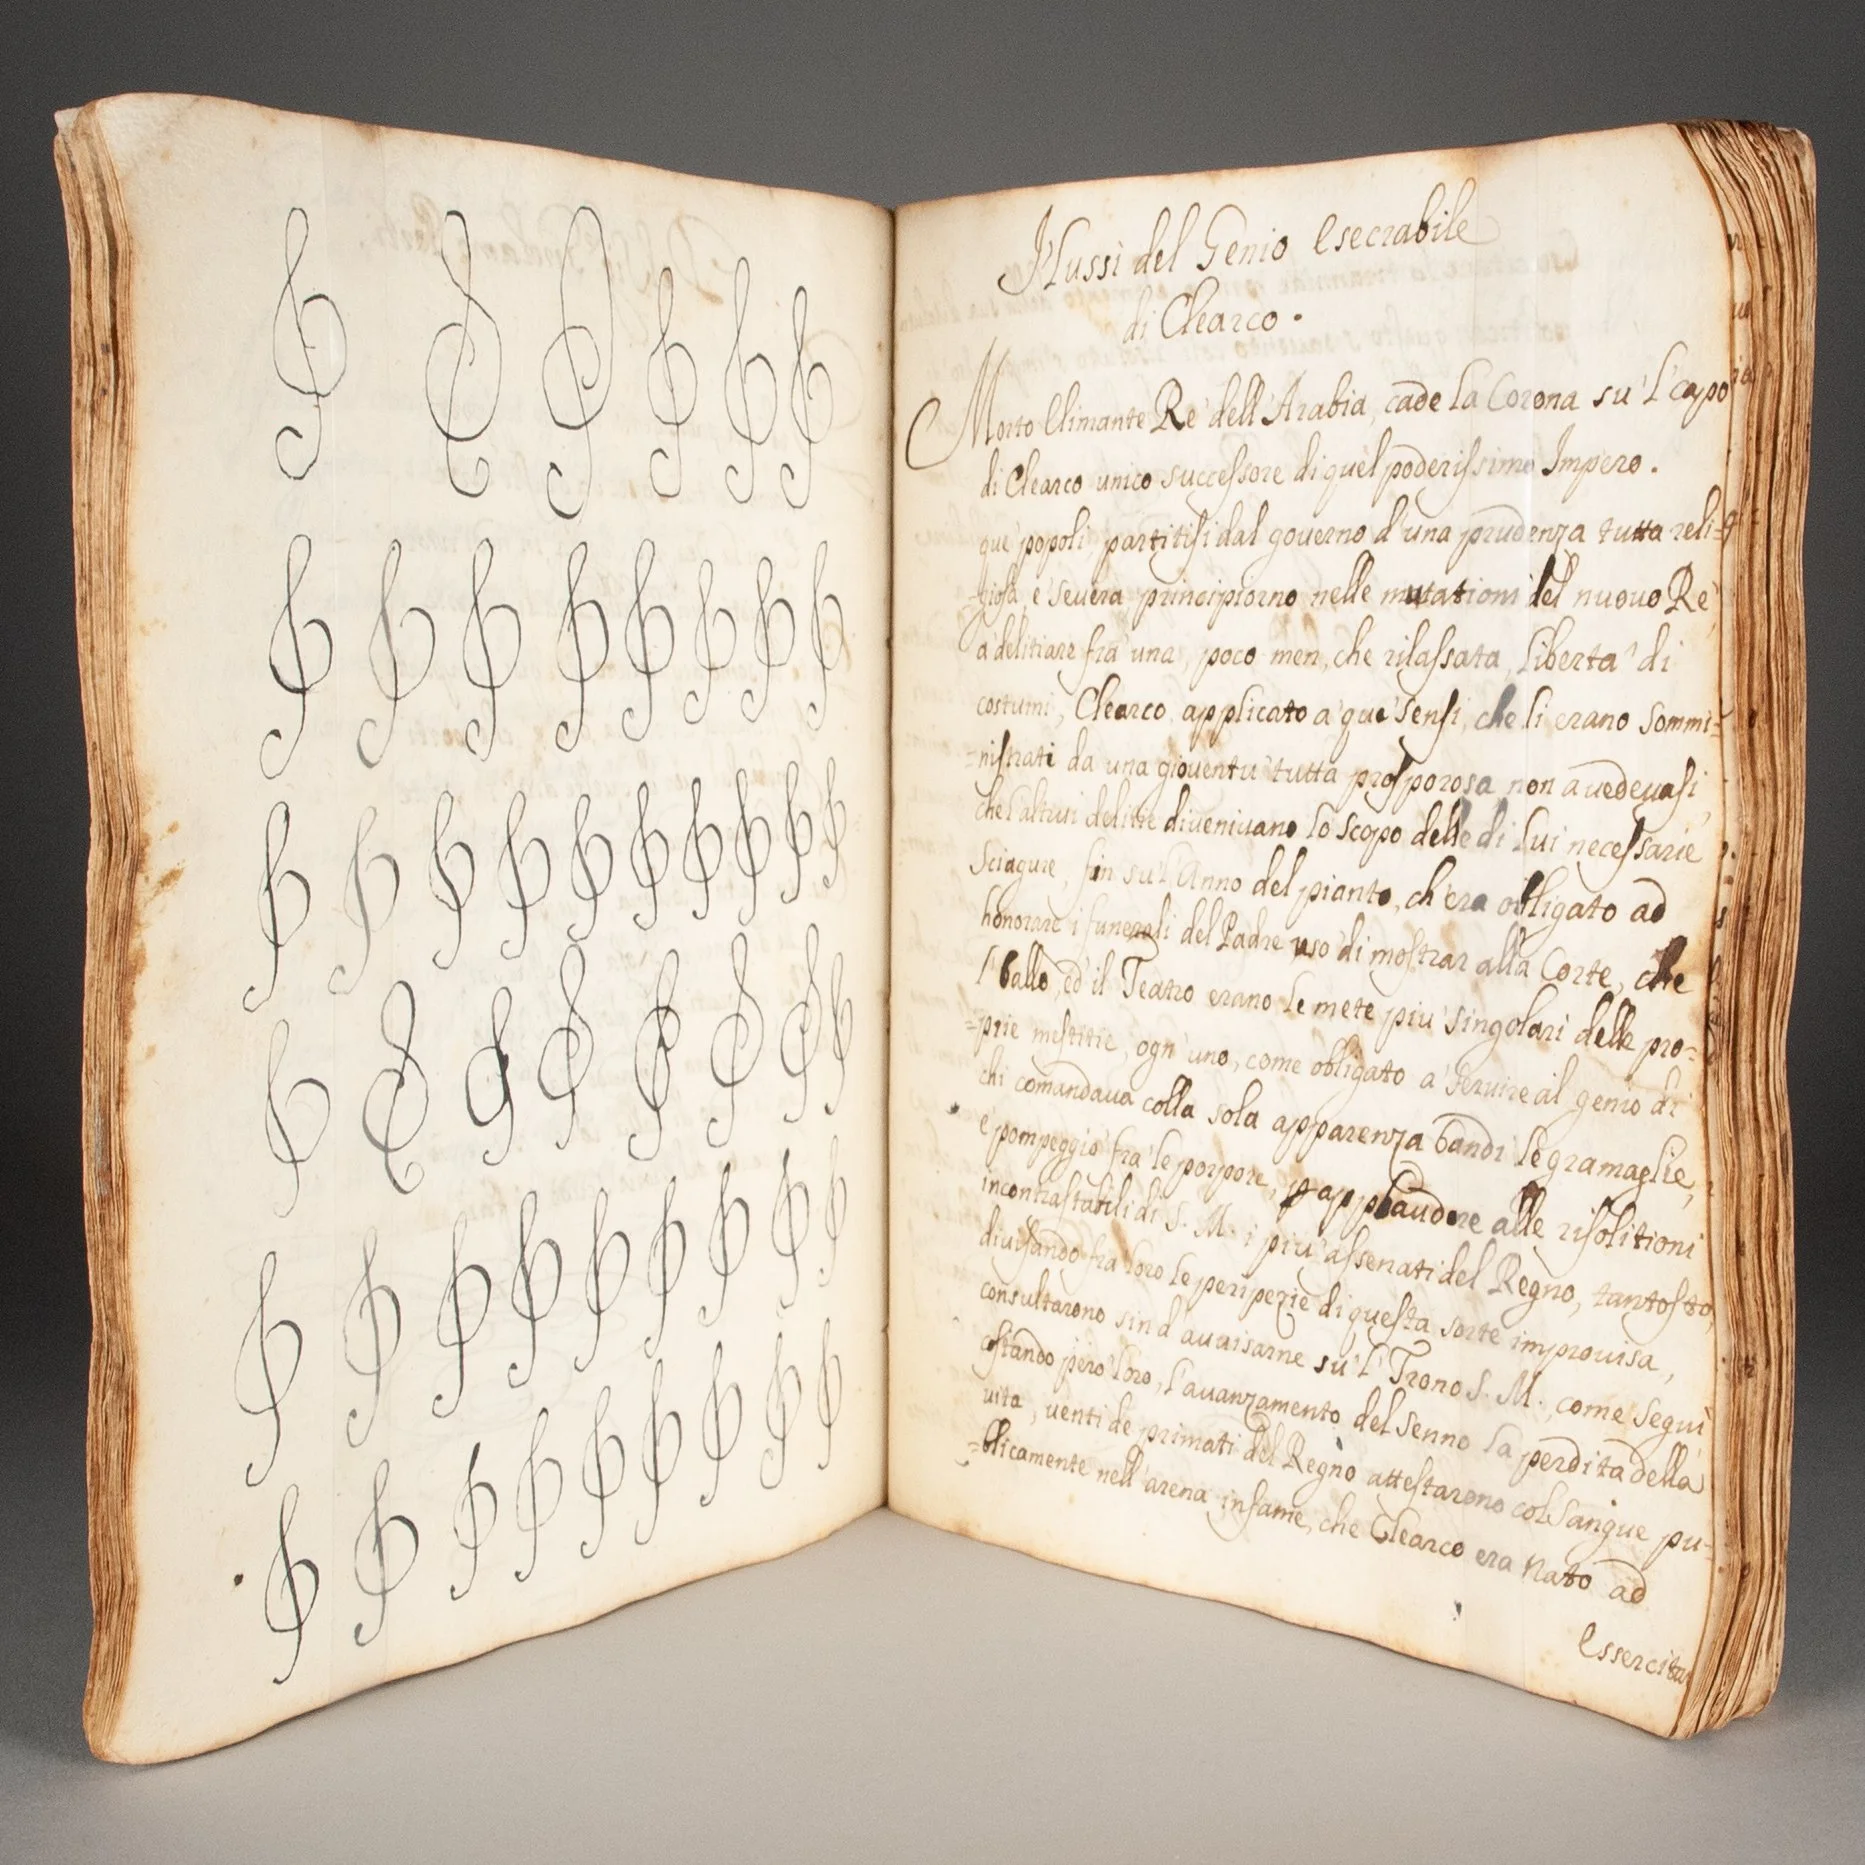 Flussi del Genio esecrabile
di Clearco.
Morto Climante Re dell'Arabia, cade la Corona su'l capo
di Clearco unico successore di quel poderissimo Impero.
que' popoli, partitisi dal governo d'una prudenza tutta reli=
giosa, e severa, principiorno nelle mutationi del nuovo Re,
a delitiare frà una, poco men, che rilassata, libertà di
costumi, Clearco, applicato a què sensi, che li erano sommi=
=nistrati da una gioventù tutta prosporosa non avedevasi,
che l'altrui delitie divenivano lo scopo delle di lui necessarie
sciagure, fin su'l Anno del pianto, ch'era obligato ad
honorare i funerali del Padre uso di mostrar alla Corte, che
l'ballo, ed il Teatro erano le mete più singolari delle pro=
=prie mestitie, ogn'uno, come obligato a servire al genio di
chi comandava colla sola apparenza bandì le gramaglie,
e pompeggiò frà le porpore, p applaudere alle risolitioni
incontrastabili di S. M. i più assenati del Regno, tantosto,
divisando frà loro le peripezie di questa sorte improvisa,
consultarono sin d'avvisarne su'l Trono S. M., come seguì
costando però loro, l'avanzamento del senno la perdita della
vita, venti de primati del Regno attestarono col Sangue pu=
=blicamente nell'arena infame, che Clearco era nato ad
essercitar